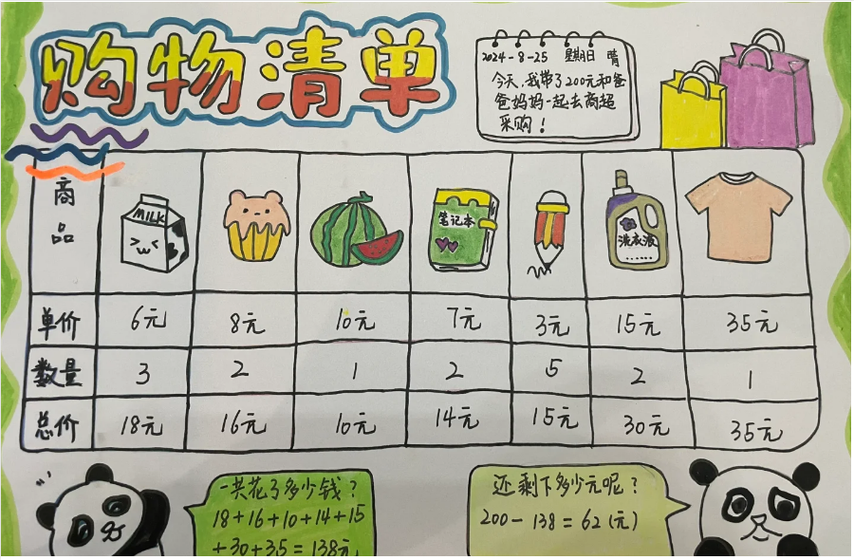 购物清单
2024-8-25 星期日 晴
今天,我带了200元和爸
爸妈妈一起去商超
采购!
商品 MILK 笔记本 洗衣液
单价 6元 8元 10元 7元 3元 15元 35元
数量 3 2 1 2 5 2 1
总价 18元 16元 10元 14元 15元 30元 35元
一共花了多少钱?
18+16+10+14+15
+30+35=138元
还剩下多少元呢?
200-138=62(元)